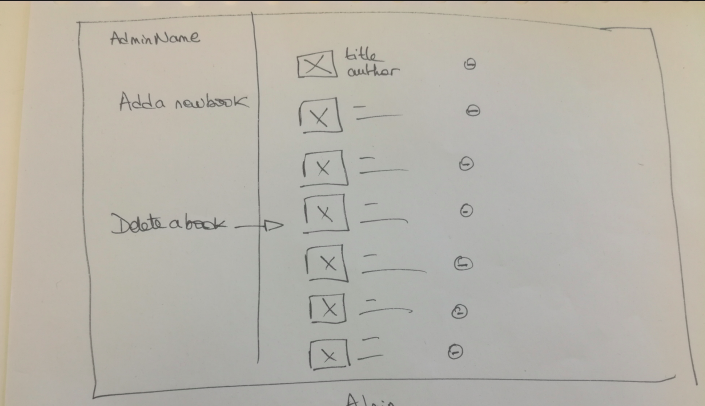 Admin Name
Add a new book
Delete a book
title
author